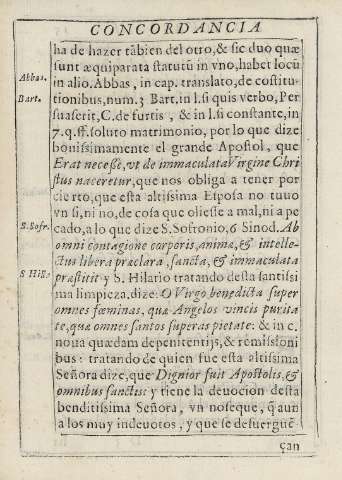 CONCORDANCIA
ha de hazer tãbien del otro, & sic duo quæ
sunt æquiparata statutũ in vno, habet locũ
Abbas.
in alio. Abbas, in cap. translato, de costitu-
Bart.
tionibus, num. 3 Bart. in l. si quis verbo, Per
suaserit, C. de furtis, & in l. si constante, in
7. q. ff. soluto matrimonio, por lo que dize
bonissimamente el grande Apostol, que
Erat necesse, vt de immaculata Virgine Chri
stus nasceretur, que nos obliga a tener por
cierto, que esta altissima Esposa no tuuo
vn si, ni no, de cosa que oliesse a mal, ni a pe
S. Sofr.
cado, a lo que dize S. Sofronio, 6 Sinod. Ab
omni contagione corporis, animæ, & intelle-
ctus libera præclara, sancta, & immaculata
S Hil.
præstitit y S. Hilario tratando desta santissi
ma limpieza, dize: O Virgo benedicta super
omnes fœminas, quæ Angelos vincis purita
te, quæ omnes santos superas pietate: & in c.
noua quædam depenitentijs, & remissioni
bus: tratando de quien fue esta altissima
Señora dize, que Dignior fuit Apostolis, &
omnibus sanctis: y tiene la deuocion desta
benditissima Señora, vn noseque, q̃ aun
a los muy indeuotos, y que se desuerguẽ-
çan